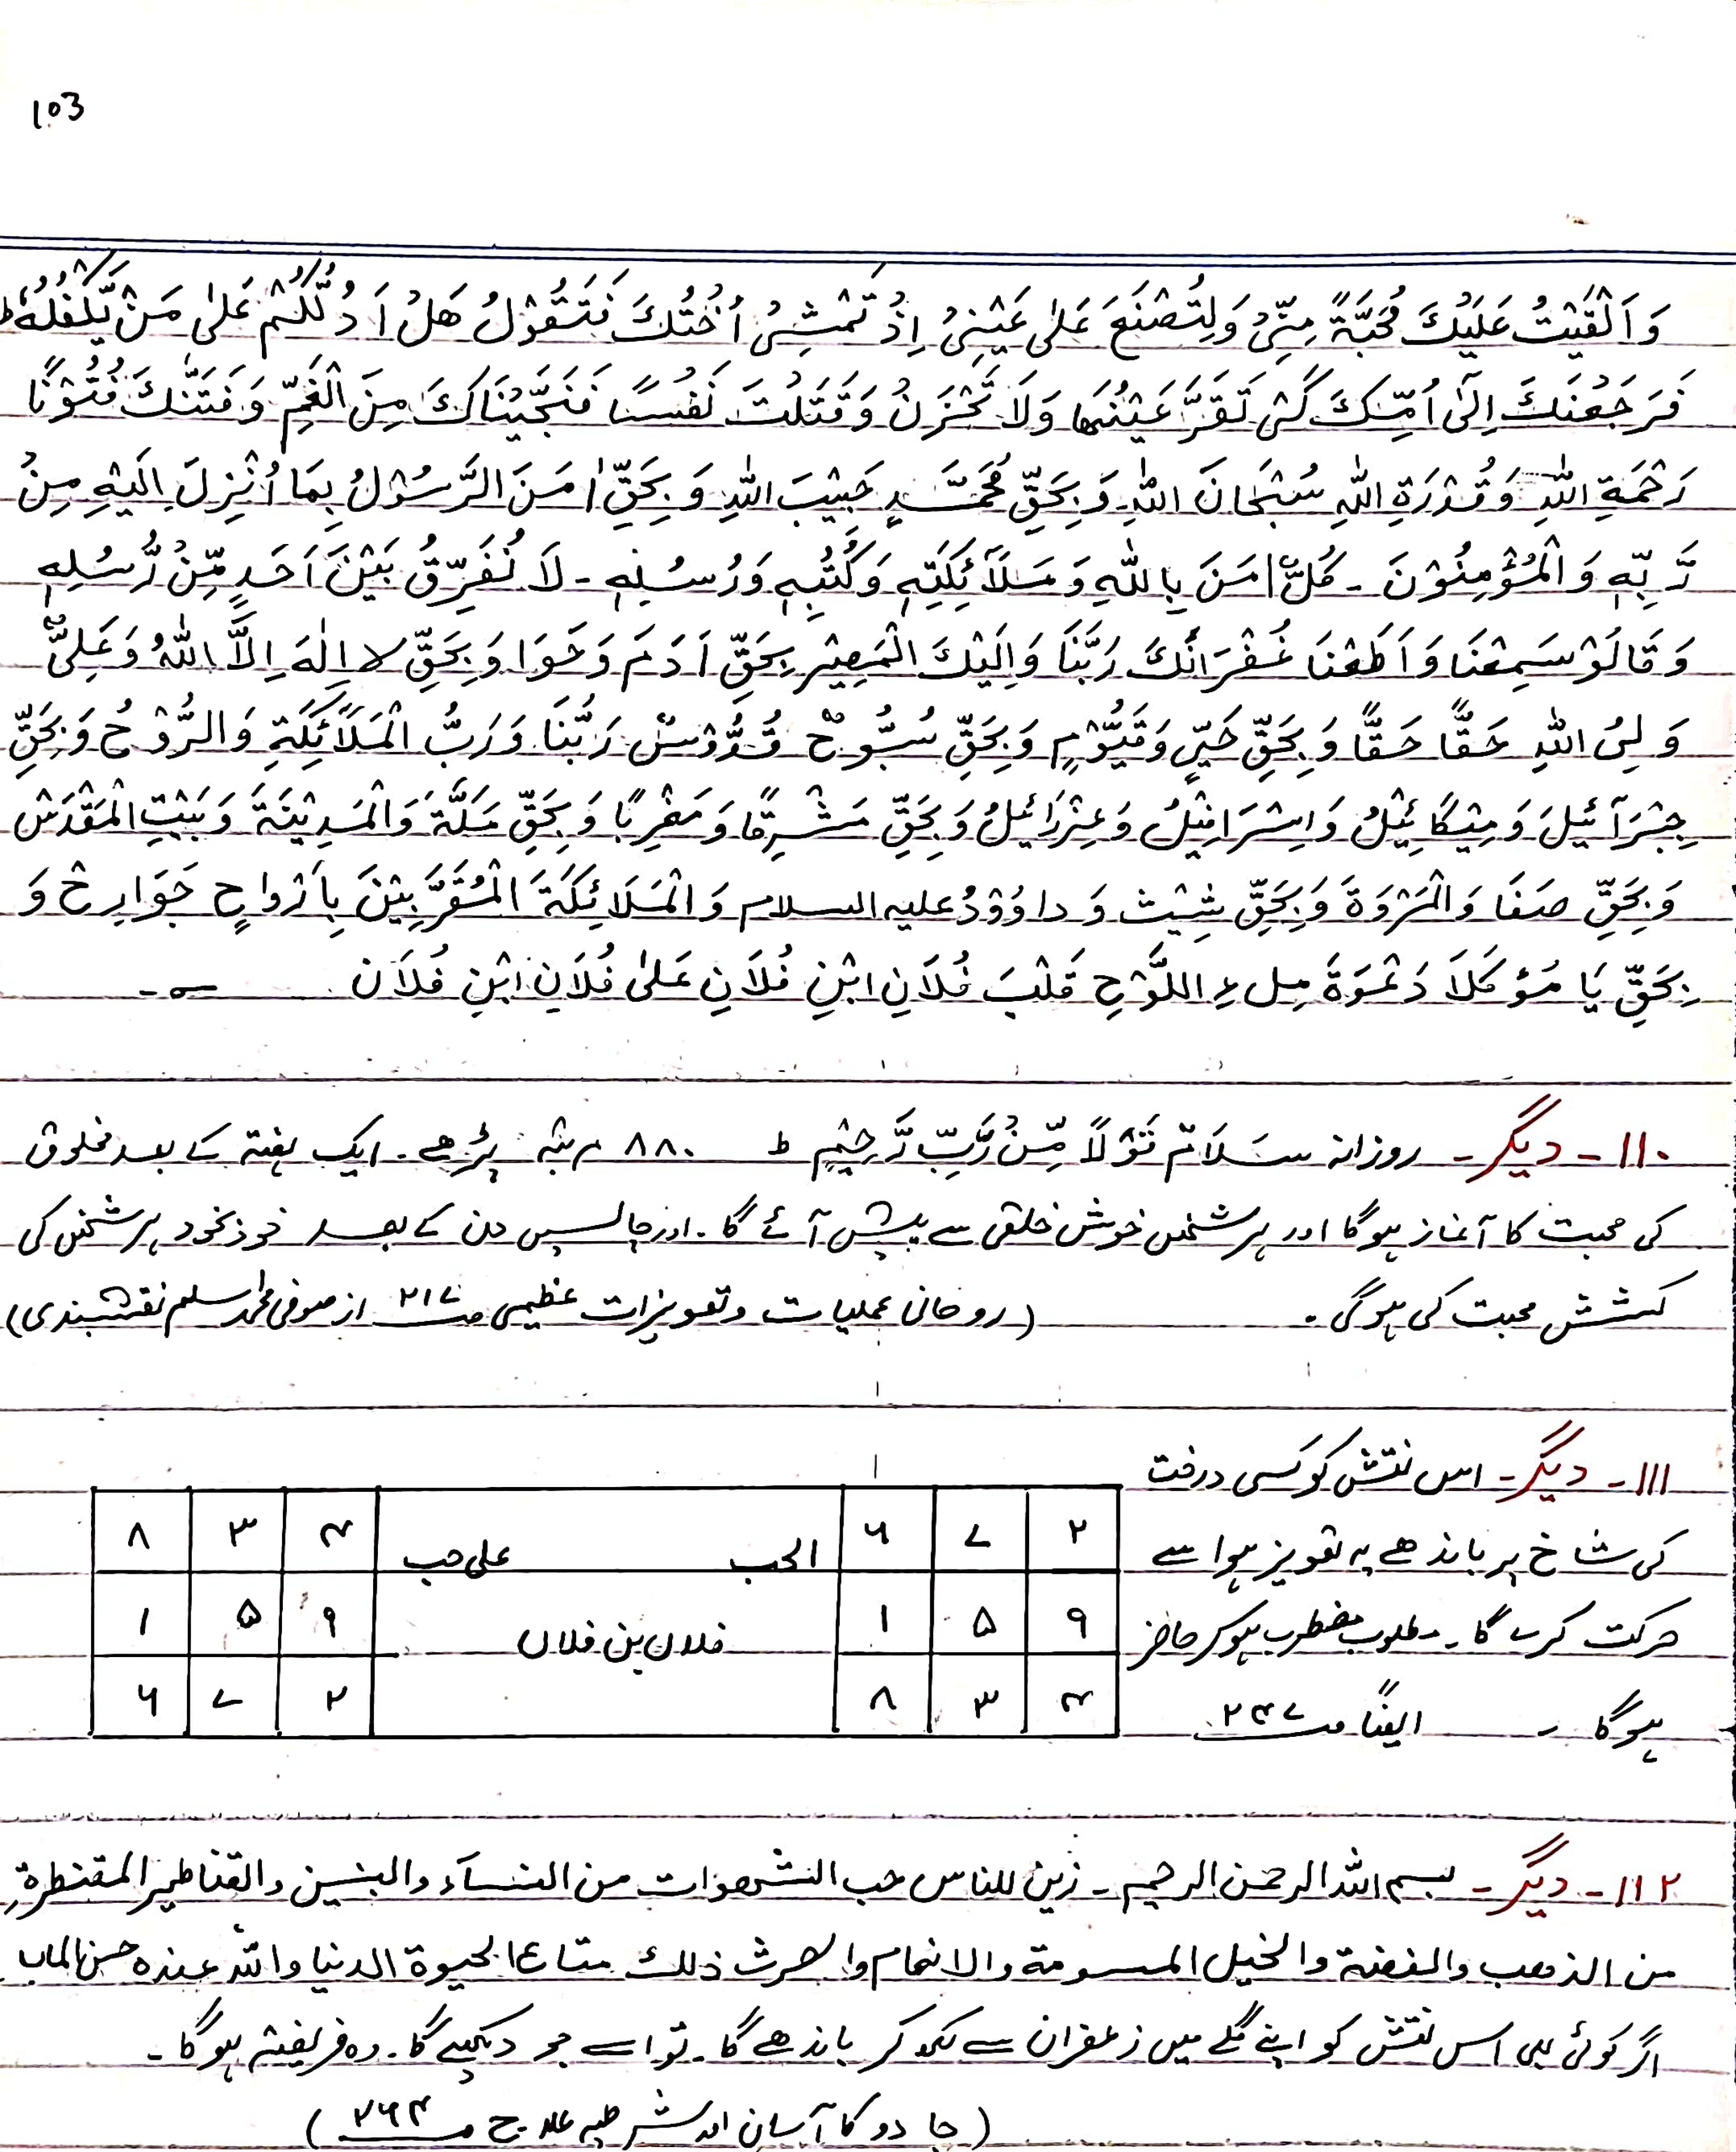 103
وَاَلْقَيْتُ عَلَيْكَ مُحَبَّةً مِنِّىْ وَلِتُصْنَعَ عَلىٰ عَيْنِىْ اِذْ تَمْشِىْ اُخْتُكَ فَتَقُوْلُ هَلْ اَدُلُّكُمْ عَلىٰ مَنْ يَّكْفُلُهٗ ط
فَرَجَعْنٰكَ اِلىٰٓ اُمِّكَ كَىْ تَقَرَّ عَيْنُهَا وَلَا تَحْزَنْ وَقَتَلْتَ نَفْسًا فَنَجَّيْنَاكَ مِنَ الْغَمِّ وَفَتَنّٰكَ فُتُوْنًا
رَحْمَةِ اللّٰهِ وَقُدْرَةِ اللّٰهِ سُبْحَانَ اللّٰهِ وَبِحَقِّ مُحَمَّدٍ حَبِيْبَ اللّٰهِ وَبِحَقِّ اٰمَنَ الرَّسُوْلُ بِمَا اُنْزِلَ اِلَيْهِ مِنْ
رَّبِّهٖ وَالْمُؤْمِنُوْنَ ۔ كُلٌّ اٰمَنَ بِاللّٰهِ وَمَلَآئِكَتِهٖ وَكُتُبِهٖ وَرُسُلِهٖ ۔ لَا نُفَرِّقُ بَيْنَ اَحَدٍ مِّنْ رُّسُلِهٖ
وَقَالُوْ سَمِعْنَا وَاَطَعْنَا غُفْرَانَكَ رَبَّنَا وَاِلَيْكَ الْمَصِيْر بِحَقِّ اٰدَمَ وَحَوَا وَبِحَقِّ لا اِلٰهَ اِلَّا اللّٰهُ وَعَلِىٌّ
وَلِىُ اللّٰهِ حَقًّا حَقًّا وَبِحَقِّ حَيٍّ وَقَيُّوْمٍ وَبِحَقِّ سُبُّوْحٌ قُدُّوْسٌ رَبُّنَا وَرَبُّ الْمَلَآئِكَةِ وَالرُّوْحُ وَبِحَقِّ
جِبْرَآئِيْلَ وَمِيْكَائِيْلُ وَاِسْرَافِيْلُ وَعِزْرَائِيْلُ وَبِحَقِّ مَشْرِقًا وَمَغْرِبًا وَبِحَقِّ مَكَّةَ وَالْمَدِيْنَةَ وَبَيْتِ الْمَقْدَسْ
وَبِحَقِّ صَفَا وَالْمَرْوَةَ وَبِحَقِّ شِيْث وَ داوُوْدُ عليه السلام وَالْمَلَائِكَةَ الْمُقَرَّبِيْنَ بِاَرْواحٍ جَوَارِحْ وَ
بِحَقِّ يَا مُؤكَلَا دَعْوَةَ مِلءِ اللَّوْحِ قَلْبَ فُلَانِ ابْنِ فُلَانِ عَلىٰ فُلَانِ ابْنِ فُلَان
۱۱۰۔ دیگر۔ روزانہ سَلَامٌ قَوْلاً مِّنْ رَّبِّ رَّحِيْمٍ ط ۸۸۰ مرتبہ پڑھے۔ ایک ہفتہ کے بعد مخلوق
کی محبت کا آغاز ہوگا اور ہر شخص خوش خلقی سے پیش آئے گا۔ اور چالیس دن کے بعد خود بخود ہر شخص کی
کشش محبت کی ہوگی۔ (روحانی عملیات وتعویزات عظیمی صـ ۲۱۷ از صوفی محمد اسلم نقشبندی)
۱۱۱۔ دیگر۔ اس نقش کو کسی درخت
کی شاخ پر باندھے یہ تعویز ہوا سے
حرکت کرے گا۔ مطلوب مضطرب ہوکر حاضر
ہوگا ۔ ایضًا صـ ۲۴۷
۲ ۷ ۶ الحب علی حب ۴ ۳ ۸
۹ ۵ ۱ فلاں بن فلاں ۹ ۵ ۱
۴ ۳ ۸ ۲ ۷ ۶
۱۱۲۔ دیگر۔ بسم الله الرحمن الرحیم۔ زین للناس حب الشھوات من النسآء والبنین والقناطیر المقنطرةِ
من الذھب والفضة والخیل المسومة والانعام والحرث ذلك متاع الحیوة الدنیا والله عندہ حسن الماب
اگر کوئی بھی اس نقش کو اپنے گلے میں زعفران سے لکھ کر باندھے گا۔ تو اسے جو دیکھے گا۔ وہ فریفتہ ہوگا۔
(جادو کا آسان اور شرطیہ علاج صـ ۲۶۴)